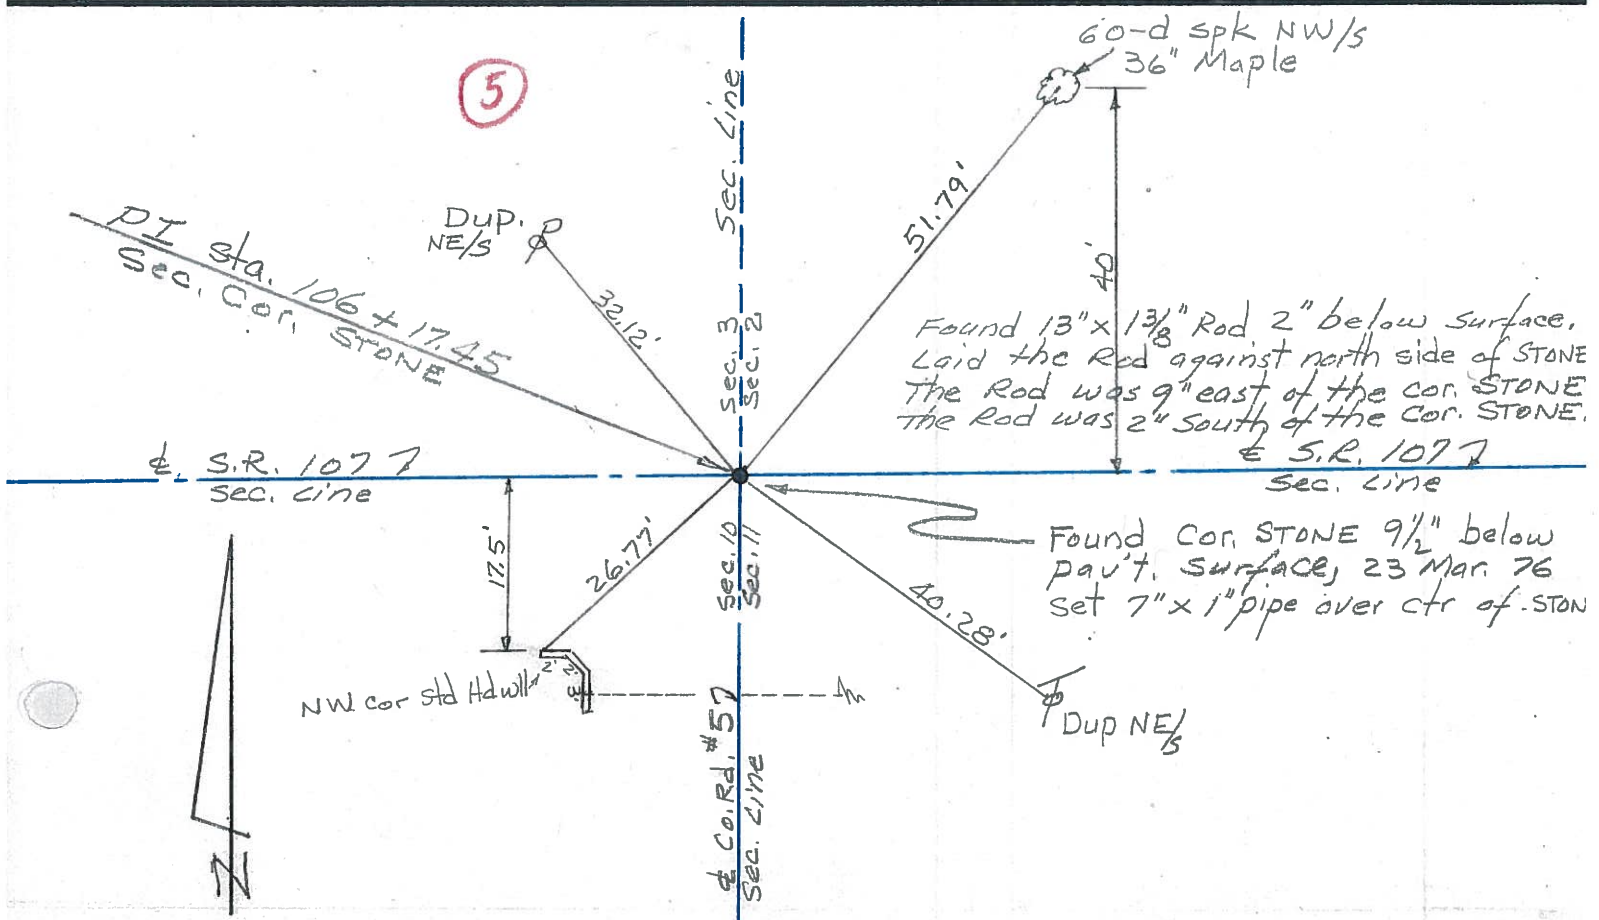 60-d spk NW/S
36" Maple
5
Sec. Line
Dup.
NE/S
51.79'
40'
PI sta. 106 + 17.45
Sec. Cor. STONE
32.12'
Sec. 3
Sec. 2
Found 13" x 1 3/8" Rod 2" below Surface.
Laid the Rod against north side of STONE
The Rod was 9" east of the cor. STONE
The Rod was 2" South of the Cor. STONE.
℄ S.R. 107
Sec. Line
℄ S.R. 107
Sec. Line
17.5'
26.77'
Sec. 10
Sec. 11
Found Cor. STONE 9 1/2" below
pav't. Surface, 23 Mar. 76
set 7" x 1" pipe over ctr of STON
40.28'
2' 2' 3'
NW cor std Hdwll
Dup NE/S
℄ Co. Rd. #57
Sec. Line
N